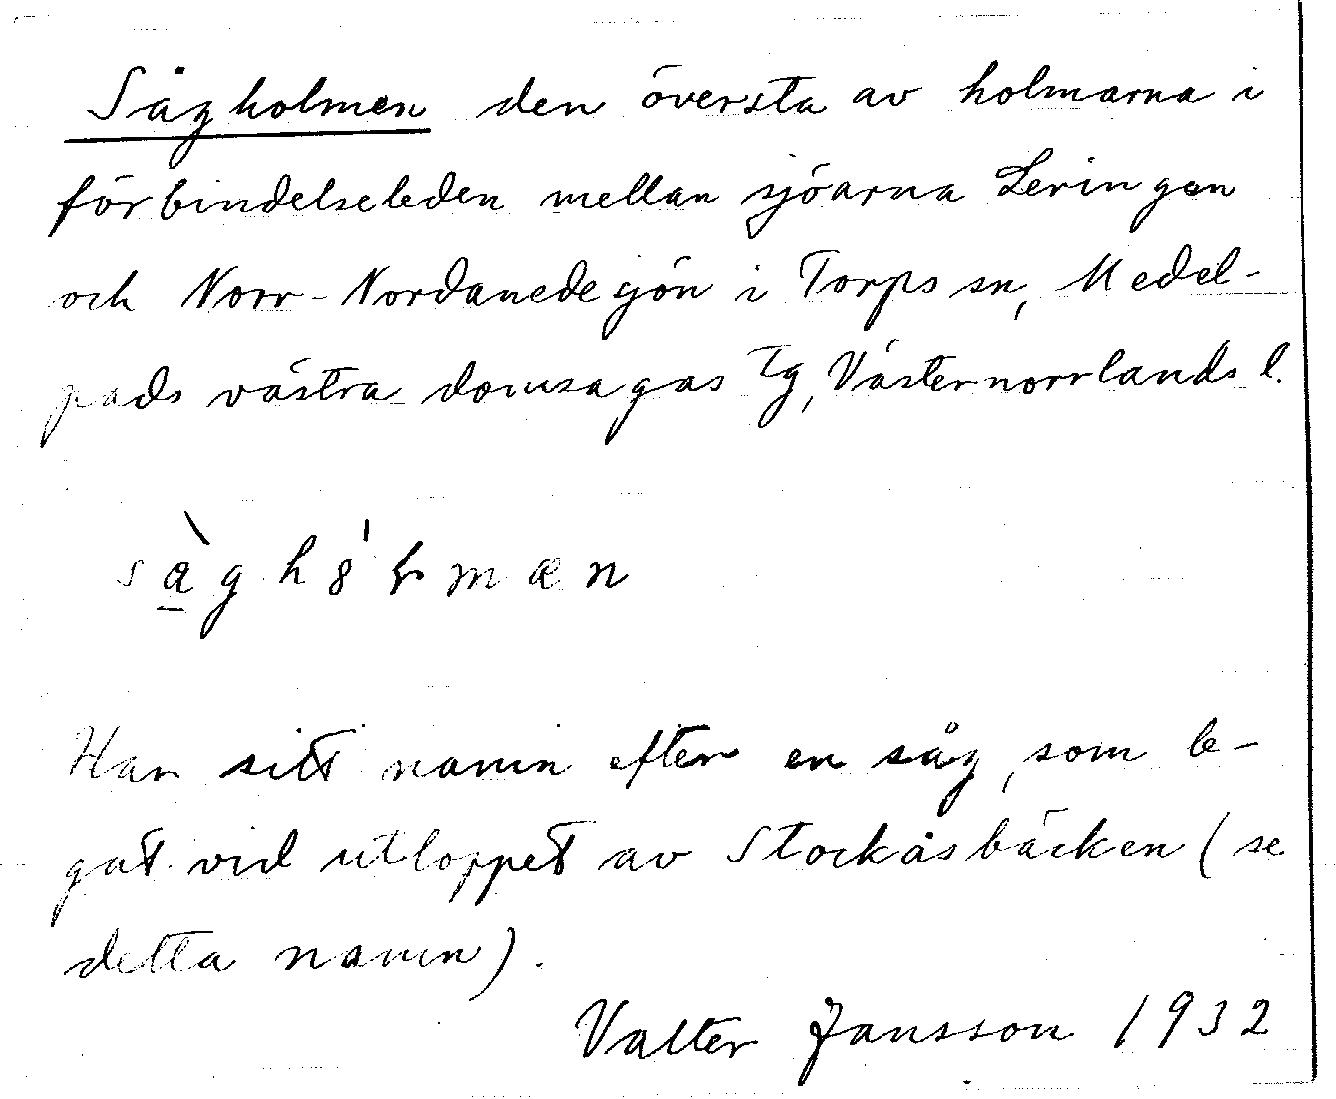 Sågholmen den översta av holmarna i
förbindelseleden mellan sjöarna Leringen
och Norr-Nordanedesjön i Torps sn, Medel-
pads västra domsagas Tg, Västernorrlands l.
sà̠gh8̍ɽmæn
Har sitt namn efter en såg, som le-
gat vid utloppet av Stockåsbäcken (se
detta namn).
Valter Jansson 1932